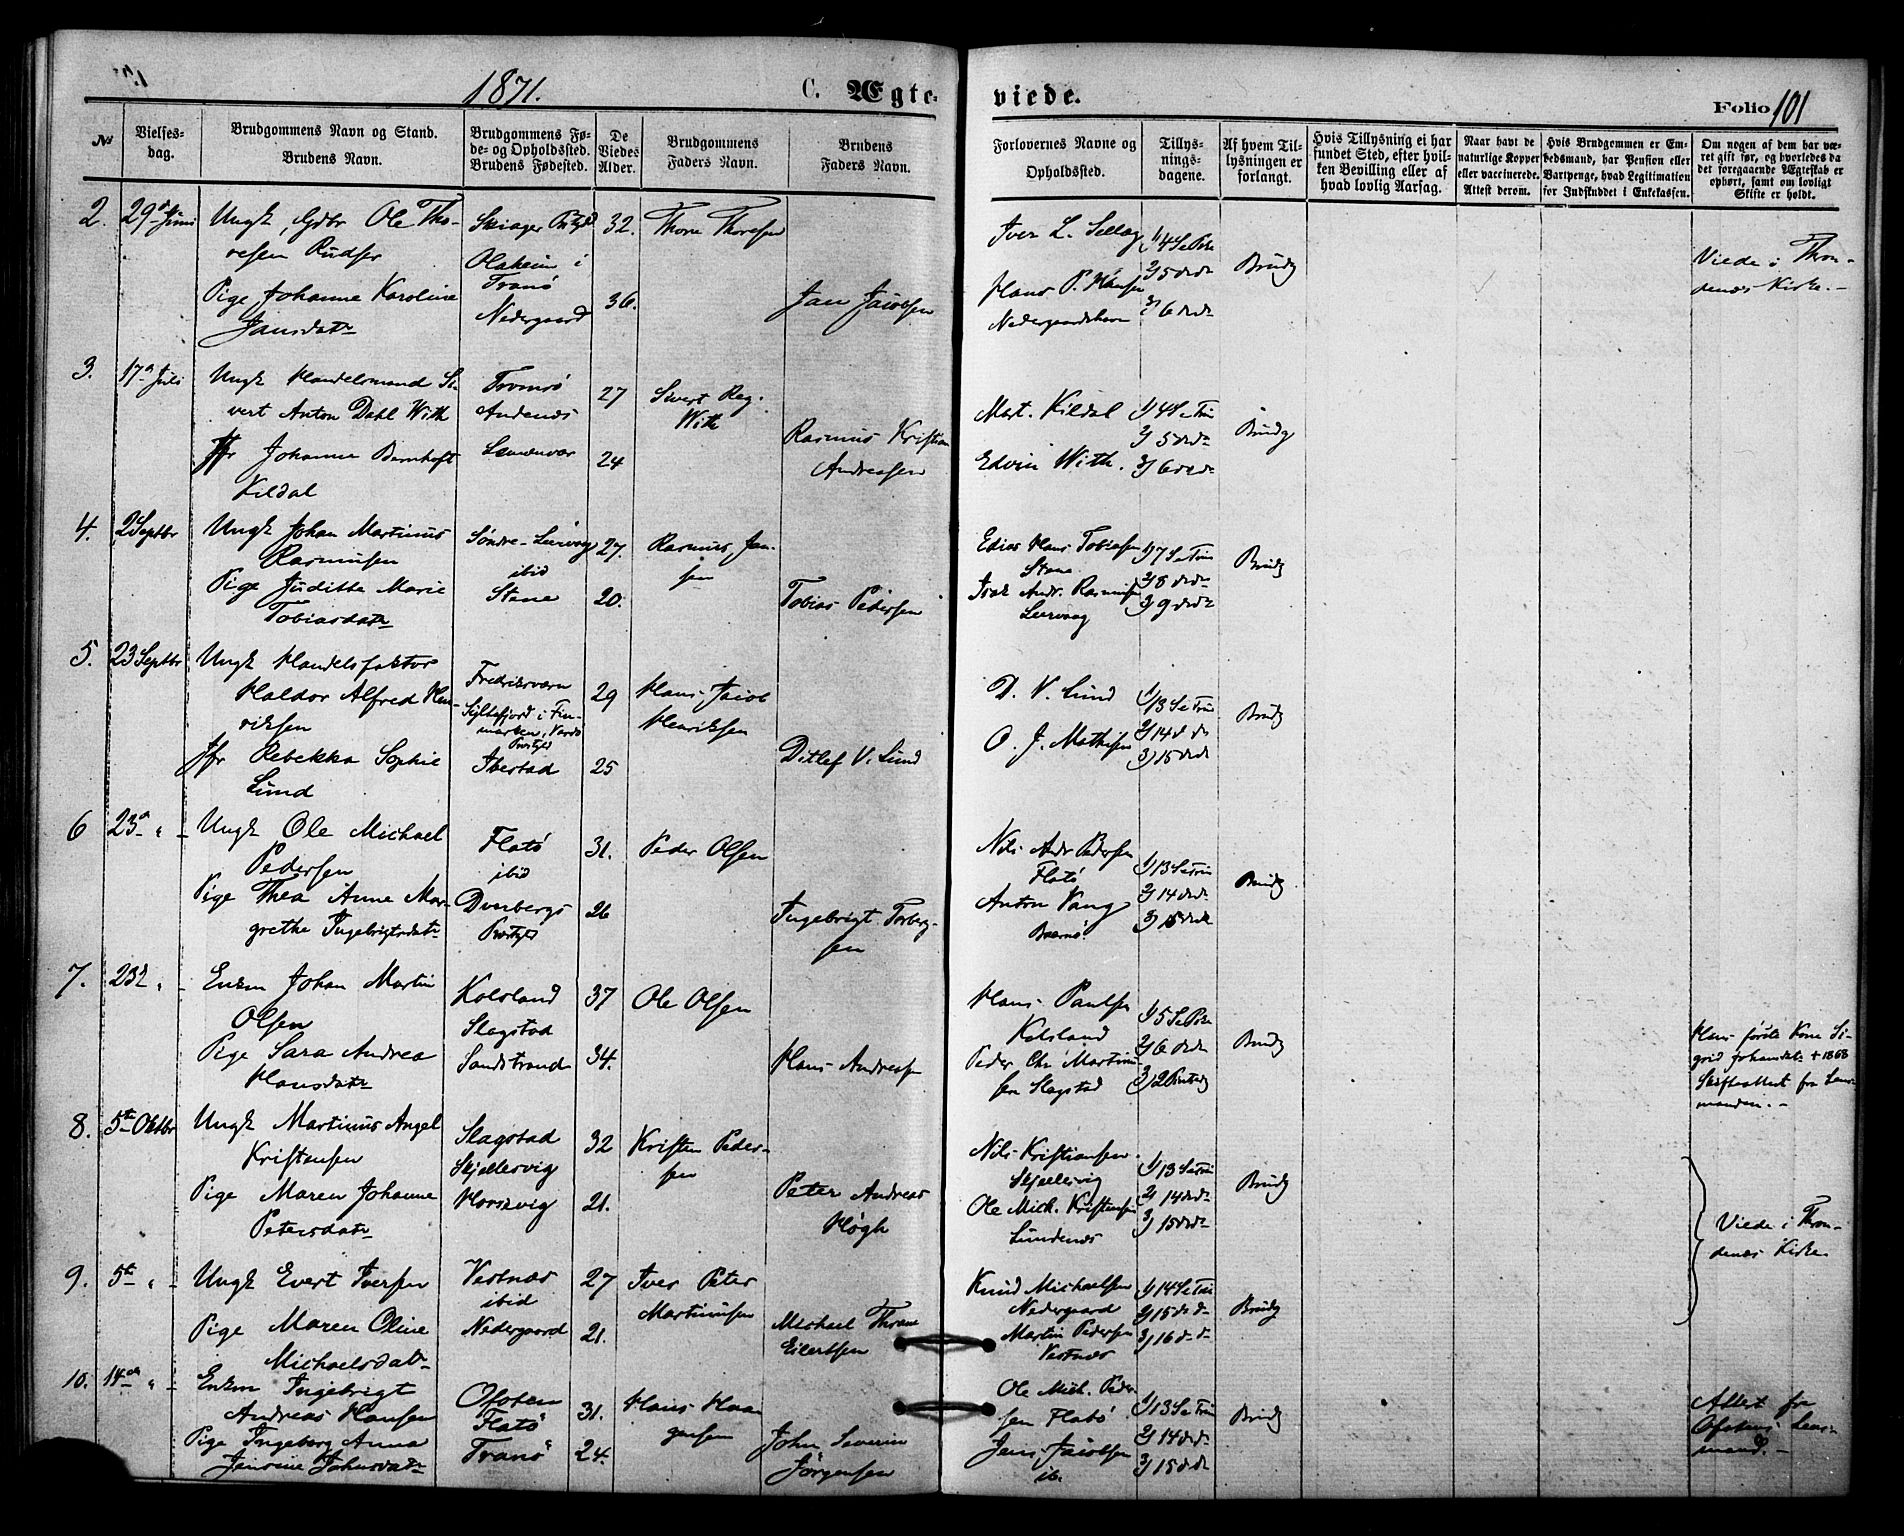 1871.
C. Ægte-
viede.
Folio 101
No
Vielses-
dag.
Brudgommens Navn og Stand.
Brudens Navn.
Brudgommens Fø-
de- og Opholdssted.
Brudens Fødested.
De
Viedes
Alder.
Brudgommens
Faders Navn.
Brudens
Faders Navn.
Forlovernes Navne og
Opholdssted.
Tillys-
nings-
dagene.
Af hvem Til-
lysningen er
forlangt.
Hvis Tillysning ei har
fundet Sted, efter hvil-
ken Bevilling eller af
hvad lovlig Aarsag.
Naar havt de
naturlige Kopper
eller vaccinerede.
Attest derom.
Hvis Brudgommen er Em-
bedsmand, har Pension eller
Vartpenge, hvad Legitimation
for Indskuddet i Enkekassen.
Om nogen af dem har væ-
ret gift før, og hvorledes da
det foregaaende Ægteskab er
ophørt, samt om lovligt
Skifte er holdt.
2. 29 Juni
Ungk, Gdbr Ole Tho-
resen Rudser
Pige Johanne Karoline
Jansdatr
Skiager Prstgld
Olaheim i
Tranø
Nedergaard
32.
36.
Thore Thoresen
Jan Jacobsen
Iver L. Sellæg
Hans P. Hansen
Nedergaardshavn
1) 4 S e Pske
2) 5 de de
3) 6 de de
Brudg
Viede i Thron-
denæs Kirke. -
3. 17 Juli
Ungk Handelsmand Si-
vert Anton Dahl With
Jfr Johanne Bernhoft
Kildal
Tromsø
Andenæs
27
24
Sivert Reg.
With
Rasmus Kristian
Andreasen
Mart. Kildal
Edvin With.
1) 4 S e Trin
2) 5 de de
3) 6 de de
Brudg
4. 2 Septbr
Ungk Johan Martinus
Rasmusen
Pige Juditha Marie
Tobiasdatr
Søndre-Leirvaag
ibid
Stene
27.
20.
Rasmus Jan-
sen
Tobias Pedersen
Edias Hans Tobiasen
Stene
Isak Andr. Rasmusen
Leirvaag
1) 7 S e Trin
2) 8 de de
3) 9 de de
Brudg
5. 23 Septbr
Ungk Handelsfaktor
Haldor Alfred Hen-
riksen
Jfr Rebekka Sophie
Lund
Fredriksværn
Syltefjord i Fin-
marken, Vardø
Prstgld
Ibestad
29
25
Hans Jacob
Henriksen
Ditlef V. Lund
D. V. Lund
O. J. Mathisen
1) 13 S e Trin
2) 14 d de
3) 15 de de
Brudg
6 23 " -
Ungk Ole Michael
Pedersen
Pige Thea Anne Mar-
grethe Ingebrigtsdatr
Flatø
ibid
Dverbergs
Prstgld
31.
26
Peder Olsen
Ingebrigt Torberg-
sen
Nils Andr Pedersen
Flatø
Anton Vang
1) 13 S e Trin
2) 14 de de
3) 15 de de
Brudg
7. 23 " -
Enkm Johan Martin
Olsen
Pige Sara Andrea
Hansdatr
Kolsland
Slagstad
Sandstrand
37
34.
Ole Olsen
Hans Andreasen
Hans Paulsen
Kolsland
Peder Chr Martin-
sen Slagstad
1) 5 S e Pske
2) 6 de de
Brudg
Hans første Kone Si-
grid Johansdatr + 1868
Skifteattest fra Lens-
manden. -
8. 5te Oktbr
Ungk Martinus Angel
Kristensen
Pige Maren Johanne
Petersdatr
Slagstad
Skjellesvig
Horsevig
32
21.
Kristen Peder-
sen
Peter Andreas
Høgh
Nils Kristiansen
Skjellesvig
Ole Mich. Kristiansen
Lundenæs
1) 13 S e Trin
2) 14 de de
3) 15 de de
Brudg
Viede i Thron-
denæs Kirke
9. 5te " -
Ungk Evert Iversen
Pige Maren Oline
Michaelsdatr
Vestnæs
ibid
Nedergaard
27
21.
Iver Peter
Martinusen
Michael Thrane
Eilertsen
Knud Michaelsen
Nedergaard
Martin Pedersen
Vestnæs
1) 14 S e Trin
2) 15 de de
3) 16 de de
Brudg
10. 14de " -
Enkm Ingebrigt
Andreas Hansen
Pige Ingeborg Anna
Jensine Johnsdatr
Ofoten
Flatø
Tranø
31.
24.
Hans Haa-
gensen
John Severin
Jørgensen
Ole Mich. Peder-
sen Flatø
Jens Jacobsen
ib.
1) 13 S e Trin
2) 14 de de
3) 15 de de
Brudg
Attest fra
Ofotens Lens-
mand. -